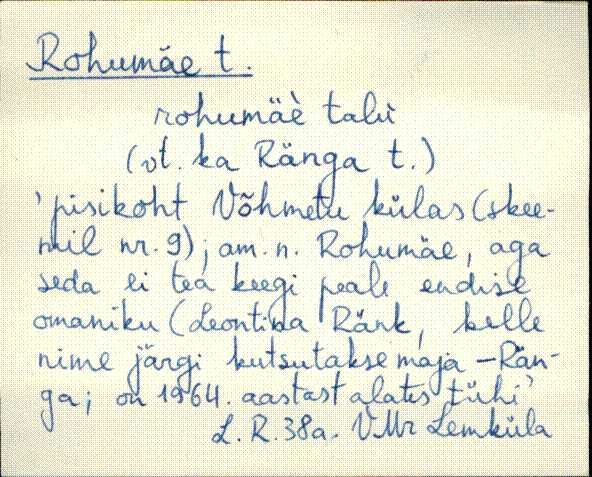 Rohumäe t.
rohumäè talù
(vt. ka Ränga t.)
'pisikoht Võhmetu külas (skee-
mil nr. 9); am. n. Rohumäe, aga
seda ei tea keegi peale endise
omaniku (Leontina Ränk, kelle
nime järgi kutsutakse maja – Rän-
ga; on 1964. aastast alates tühi'
L. R. 38a. VMr Lemküla